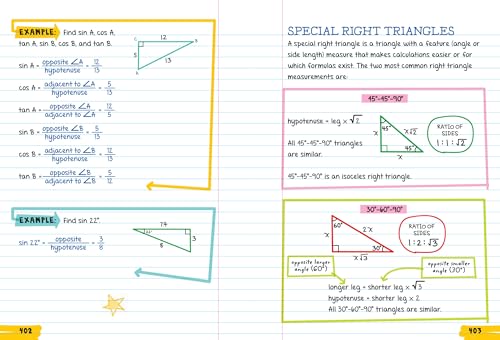 EXAMPLE: Find sin A, cos A,
tan A, sin B, cos B, and tan B.
C 12 B
5
13
A
sin A = opposite ∠A / hypotenuse = 12/13
cos A = adjacent to ∠A / hypotenuse = 5/13
tan A = opposite ∠A / adjacent to ∠A = 12/5
sin B = opposite ∠B / hypotenuse = 5/13
cos B = adjacent to ∠B / hypotenuse = 12/13
tan B = opposite ∠B / adjacent to ∠B = 5/12
EXAMPLE: Find sin 22°.
7.4
22°
3
8
sin 22° = opposite / hypotenuse = 3/8
402
SPECIAL RIGHT TRIANGLES
A special right triangle is a triangle with a feature (angle or
side length) measure that makes calculations easier or for
which formulas exist. The two most common right triangle
measurements are:
45°-45°-90°
hypotenuse = leg x √2
All 45°-45°-90° triangles
are similar.
45°
x
x√2
45°
x
RATIO OF
SIDES
1:1:√2
45°-45°-90° is an isoceles right triangle.
30°-60°-90°
60°
x
2x
30°
x√3
RATIO OF
SIDES
1:2:√3
opposite larger
angle (60°)
opposite smaller
angle (30°)
longer leg = shorter leg x √3
hypotenuse = shorter leg x 2
All 30°-60°-90° triangles are similar.
403